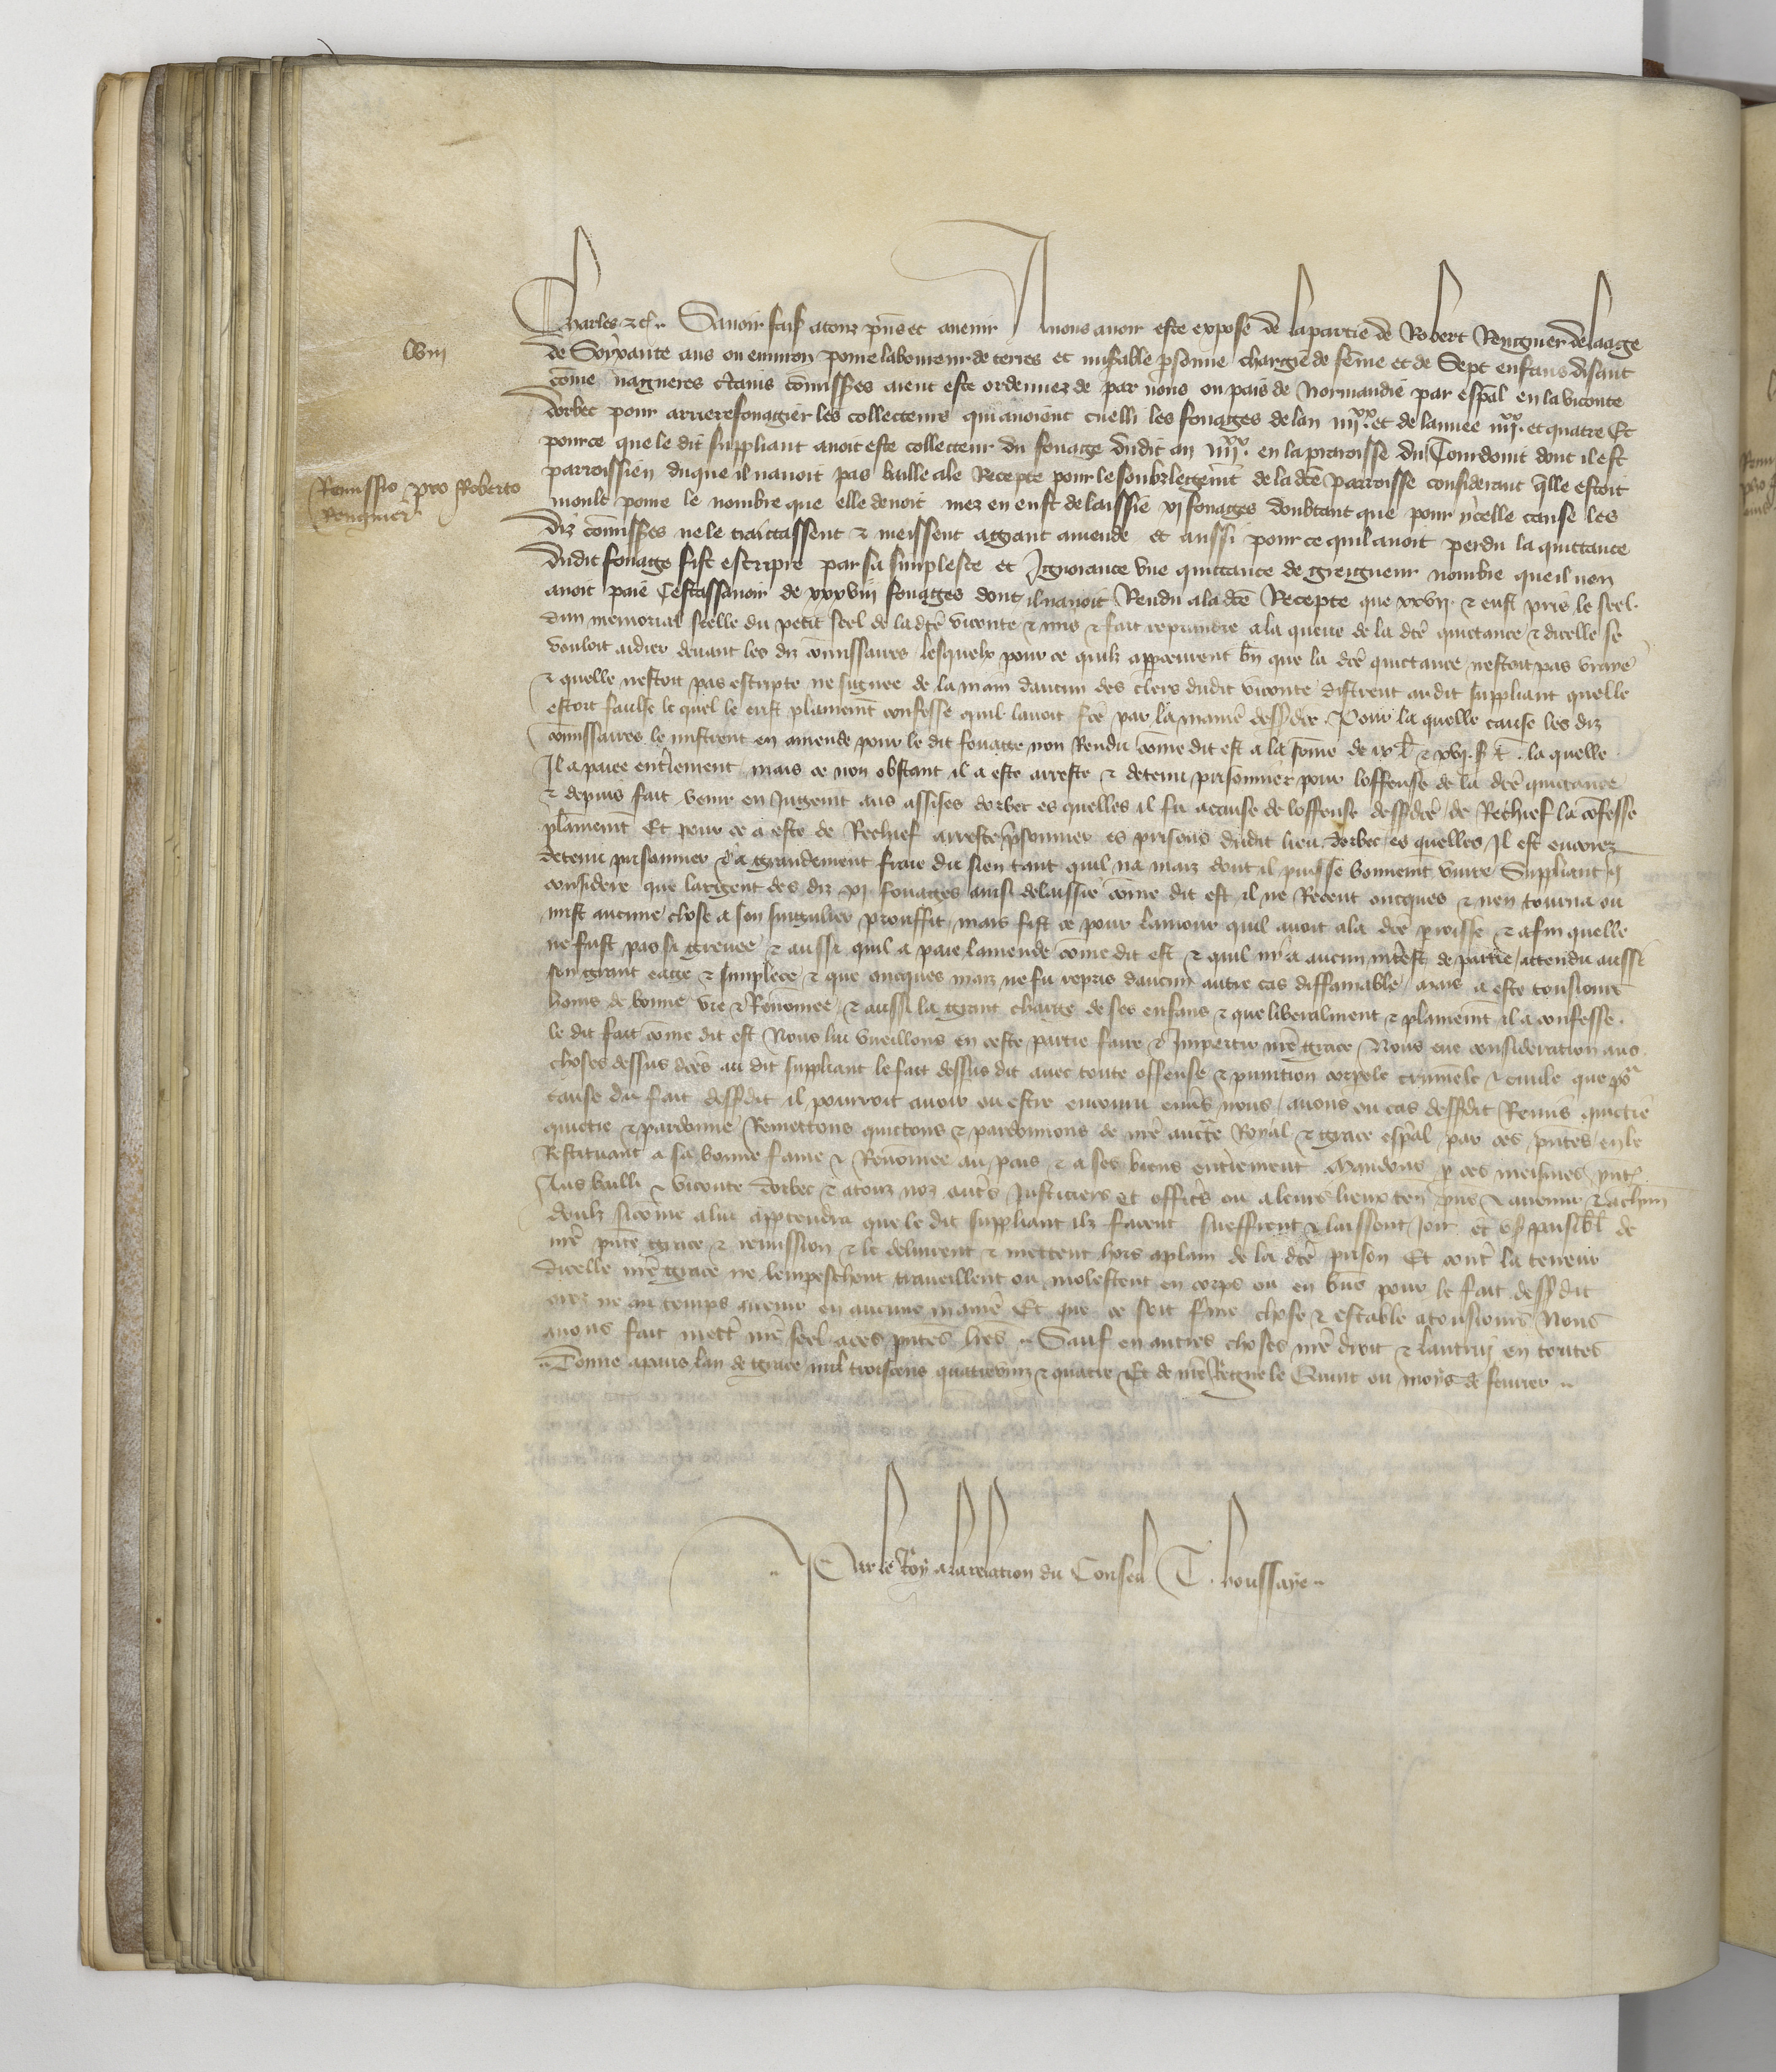 Charles etc. Savoir faiſ a touz pñs et avenir A nous avoir eſte expoſe de la partie de Robert Rengner de laage
lviii
de Soixante ans ou environ povre laboureur de terres et miſable pſonne chargie de fẽme et de Sept enfans diſant
cõme nagueres ctains cõmiſſes aient eſte ordennez de par nous ou pais de Normandie par eſpal en la viconte
dorbec pour arrierefouagier les collecteurs qui avoient cueilli les fouages de lan iiijxx et de lannee iiijxx et quatre Et
pource que le dit ſuppliant avoit eſte collecteur du fouage dudit an iiijxx en la parroiſſe du Tourdouit dont il eſt
Remiſſio pro Roberto
Rengner
parroiſſien duque il navoit pas baille a le Recepte pour le ſoubzlegemt de la dce parroiſſe conſiderant qlle eſtoit
moult povre le nombre que elle devoit mez en euſt delaiſſie vj fouages doubtant que pour ycelle cauſe les
diz cõmiſſes ne le traictaſſent et meiſſent a grant amende et auſſi pour ce quil avoit perdu la quittance
dudit fouage fiſt eſcripre par ſa ſimpleſce et Ignorance une quictance de greigneur nombre que il nen
avoit paie Ceſtaſſavoir de xxxviij fouages dont il navoit Rendu a la dce Recepte que xxvij et euſt pris le ſeel
dun memorial ſcelle du petit ſeel de la dce viconte et mis et fait reprandre a la queue de la dce quictance et dicelle ſe
vouloit aidier devant les diz cõmiſſaires leſquelx pour ce quilz appceurent bñ que la dce quictance neſtoit pas vraye
et quelle neſtoit pas eſcripte ne ſignee de la main daucun des clers dudit viconte diſtrent au dit ſuppliant quelle
eſtoit faulſe le quel le euſt plainemt confeſſe quil lavoit fce par la maniẽ deſſdce Pour la quelle cauſe les diz
cõmiſſaires le miſtrent en amende pour le dit fouage non Rendu cõme dit eſt a la ſõme de ix l. et xvj. ſ. t. la quelle
Il a paiee entierement mais ce non obſtant il a eſte arreſte et detenu priſonnier pour loffenſe de la dce quictance
et depuis fait venir en Jugemt aus aſſiſes dorbec es quelles il fu acauſe de loffenſe deſſdce de Rechief la cõfeſſe
plainemt Et pour ce a eſte de Rechief arreſte pſonnier es priſons dudit lieu dorbec es quelles Il eſt encorez
detenu priſonnier et a grandement fraie du ſien tant quil na maiz dont il puiſſe bonnemt vivre Suppliant q̃
conſidere que largent des diz vj fouages ainſi delaiſſie cõme dit eſt il ne Recent oncques et nen tourna ou
miſt aucune choſe a ſon ſingulier prouffit mais fiſt ce pour lamour quil avoit a la dce proiſſe et afin quelle
ne fuſt pas ſi grevee et auſſi quil a paie lamende cõme dit eſt et quil ny a aucun intereſt de partie attendu auſſi
ſon grant eage et ſimplece et que oncques maiz ne fu repris daucun autre cas diffamable mais a eſte touſiours
homs de bonne vie et Renõmee et auſſi la grant charge de ſes enfans et que liberalment et plainemt il a confeſſe
le dit fait cõme dit eſt Nous lui vueillons en ceſte partie faire et Impertir nrẽ grace Nous eue conſideration aus
choſes deſſus dces au dit ſuppliant le fait deſſus dit avec toute offenſe et punition corpele crimele et civile que por
cauſe du fait deſſdit il pourroit avoir ou eſtre encouru envs nous avons ou cas deſſdit Remis quictie
quictie et pardonne Remettons quictons et pardonnons de nrẽ auctte Royal et grace eſpal par ces pñtes en le
Reſtituant a ſa bonne fame et Renõmee au pais et a ſes biens entierement Mandons p ces meiſmes pñtes
Aus bailli et viconte dorbec et a touz noz autrs Juſticiers et officrs ou a leurs lieux teñ pñs et avenir et a chũn
deulz ſicome a lui apptendra que le dit ſuppliant ilz facent ſueffrent et laiſſent Joir et uſ paiſibl de
nrẽ pñte grace et remiſſion et le delivrent et mettent hors a plain de la dce priſon Et contre la teneur
dicelle nrẽ grace ne lempeſchent traveillent ou moleſtent en corps ou en biens pour le fait deſſdit
orez ne au temps avenir en aucune maniẽ Et que ce ſoit ferme choſe et eſtable a touſiours Nous
avons fait mettr nrẽ ſeel a ces pñtes lrẽs Sauf en autres choſes nrẽ droit et lautruy en toutes
Donne a paris lan de grace mil troiscens quatrevins et quatre Et de nrẽ Regne le Quint ou moys de fevrier
Par le Roy a la relation du Conseil T. houssaye